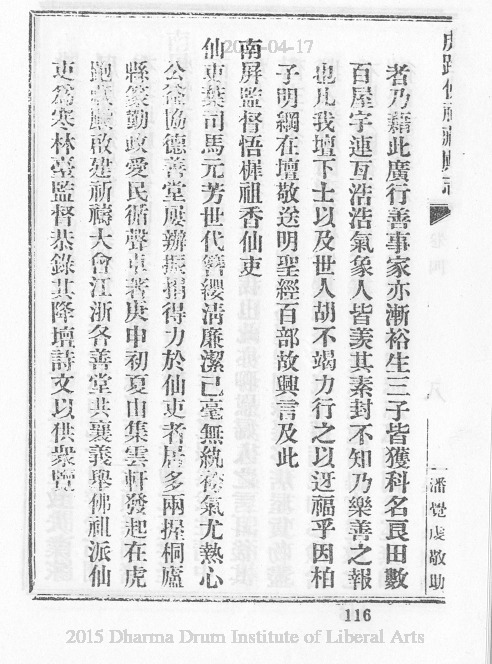 虎跑佛祖藏殿志
卷四
潘覺虔敬助
者乃藉此廣行善事家亦漸裕生三子皆獲科名良田數
百屋宇連亙浩浩氣象人皆羨其素封不知乃樂善之報
也凡我壇下士以及世人胡不竭力行之以迓福乎因柏
子明綱在壇敬送明聖經百部故興言及此
南屏監督悟樨祖香仙吏
仙吏葉司馬元芳世代簪纓清廉潔己毫無紈袴氣尤熱心
公益協德善堂屢辦振捐得力於仙吏者居多兩握桐廬
縣篆勤政愛民循聲卓著庚申初夏由集雲軒發起在虎
跑發願啟建祈禱大會江浙各善堂共襄義舉佛祖派仙
吏為寒林臺監督恭錄其降壇詩文以供衆覽
116
2015-04-17
2015 Dharma Drum Institute of Liberal Arts